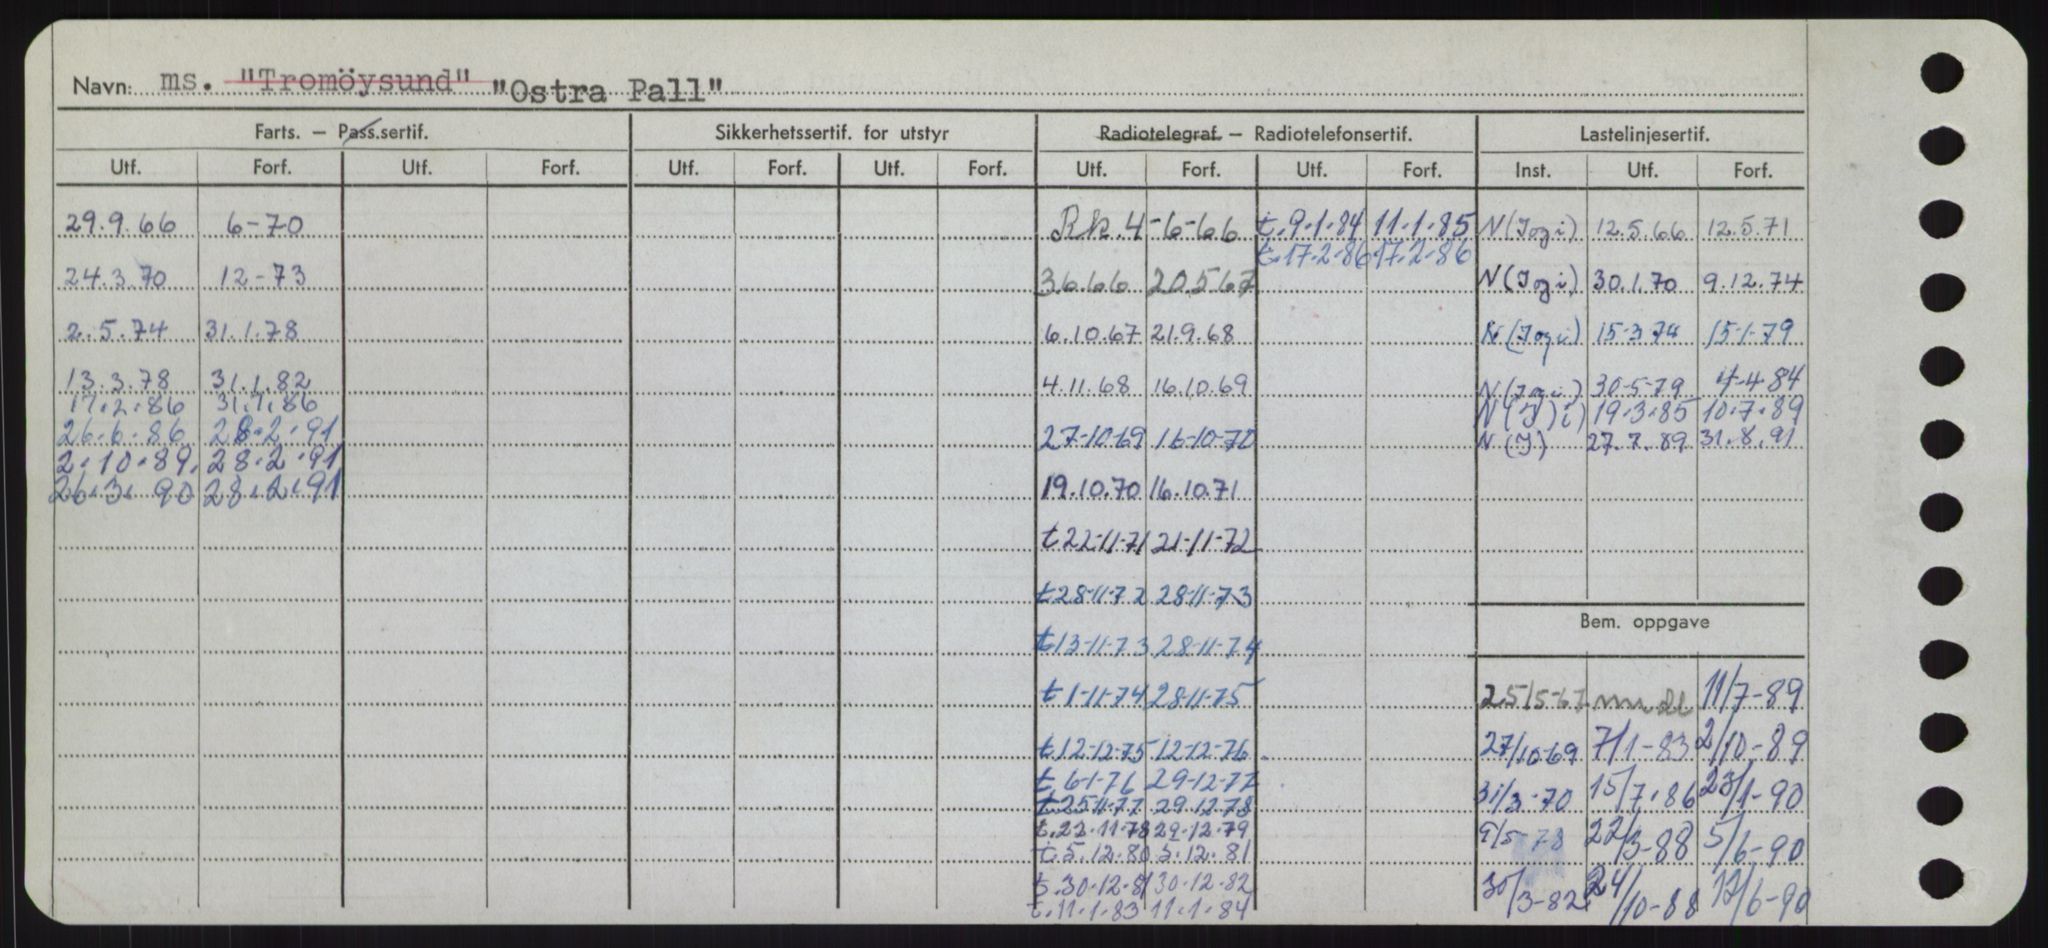 Navn: ms. "Tromöysund" "Ostra Pall"
Farts. – Pass.sertif. Sikkerhetssertif. for utstyr Radiotelegraf – Radiotelefonsertif. Lastelinjesertif.
Utf. Forf. Utf. Forf. Utf. Forf. Utf. Forf. Utf. Forf. Utf. Forf. Inst. Utf. Forf.
29.9.66 6-70 Rk. 4-6-66 t.9.1.84 11.1.85 N(Jogi) 12.5.66 12.5.71
t.17.2.86 17.2.86
24.3.70 12-73 3.6.66 20.5.67 N(Jogi) 30.1.70 9.12.74
2.5.74 31.1.78 6.10.67 21.9.68 N(Jogi) 15-3-74 15-1-79
13.3.78 31.1.82 4.11.68 16.10.69 N(Jogi) 30-5-79 4-4-84
17.2.86 31.7.86 N(J)i) 19.3.85 10.7.89
26.6.86 28.2.91 27-10-69 16-10-70 N(J) 27.7.89 31.8.91
2.10.89. 28.2.91
26.3.90 28.2.91 19.10.70 16.10.71
t 22-11-71 21-11-72
t 28-11-72 28-11-73
Bem. oppgave
t 13-11-73 28-11-74
t 1-11-74 28-11-75 25/5-67 11/7-89
t 12-12-75 12-12-76 27/10-69 7/1-83 2/10-89
t. 6-1-76 29-12-77 31/3-70 15/7-86 23/1-90
t 25-11-77 29.12.78
t. 22.11.78 29.12.79 9/5-78 22/3-88 5/6-90
t. 5.12.80 5.12.81
t. 30.12.81 30.12.82 30/3-82 24/10-88 12/6-90
t. 11.1.83 11.1.84